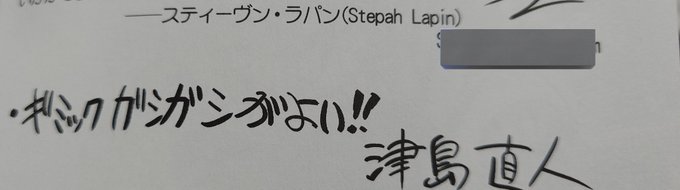 ——スティーヴン・ラパン(Stepah Lapin)
・ギミックガシガシがよい!!
津島直人